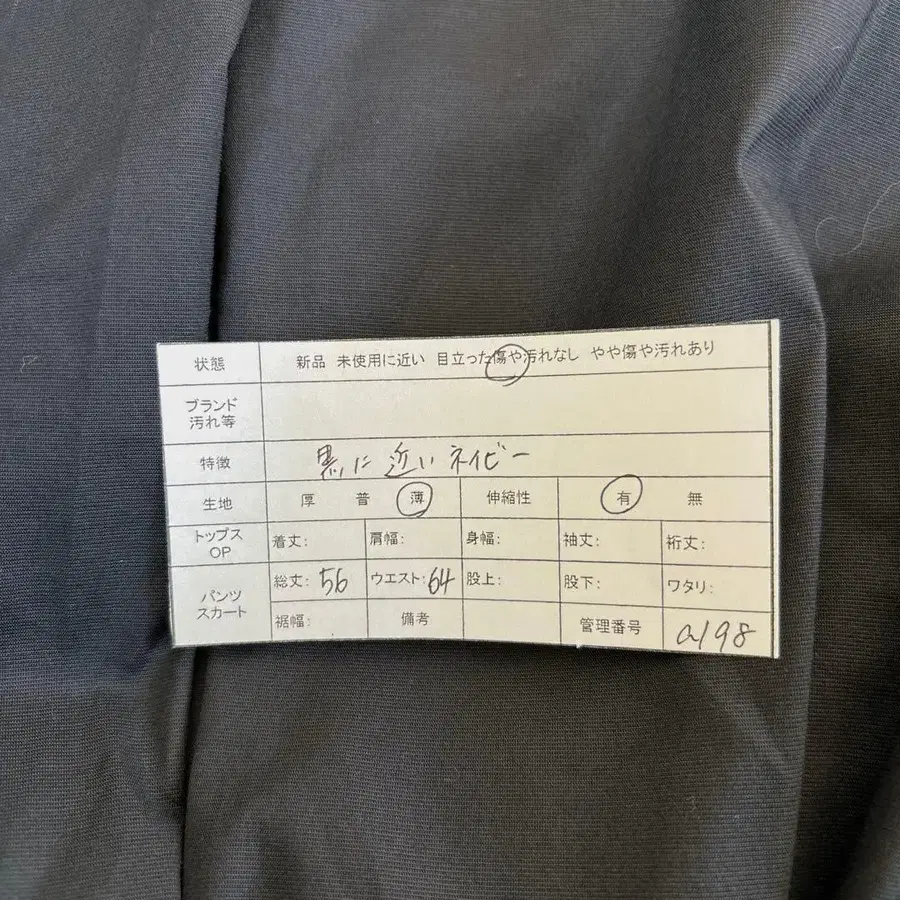 状態 新品 未使用に近い 目立った傷や汚れなし やや傷や汚れあり
ブランド
汚れ等
特徴 黒に近いネイビー
生地 厚 普 薄 伸縮性 有 無
トップス
OP
着丈: 肩幅: 身幅: 袖丈: 裄丈:
パンツ
スカート
総丈: 56 ウエスト: 64 股上: 股下: ワタリ:
裾幅: 備考 管理番号 a198